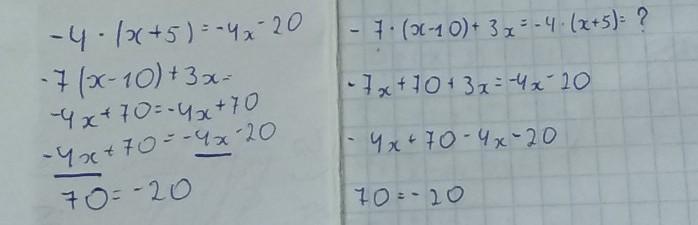 -4·(x+5)=-4x-20
-7(x-10)+3x=
-4x+70=-4x+70
-4x+70=-4x-20
70=-20
-7·(x-10)+3x=-4·(x+5)=?
-7x+70+3x=-4x-20
-4x+70-4x-20
70=-20